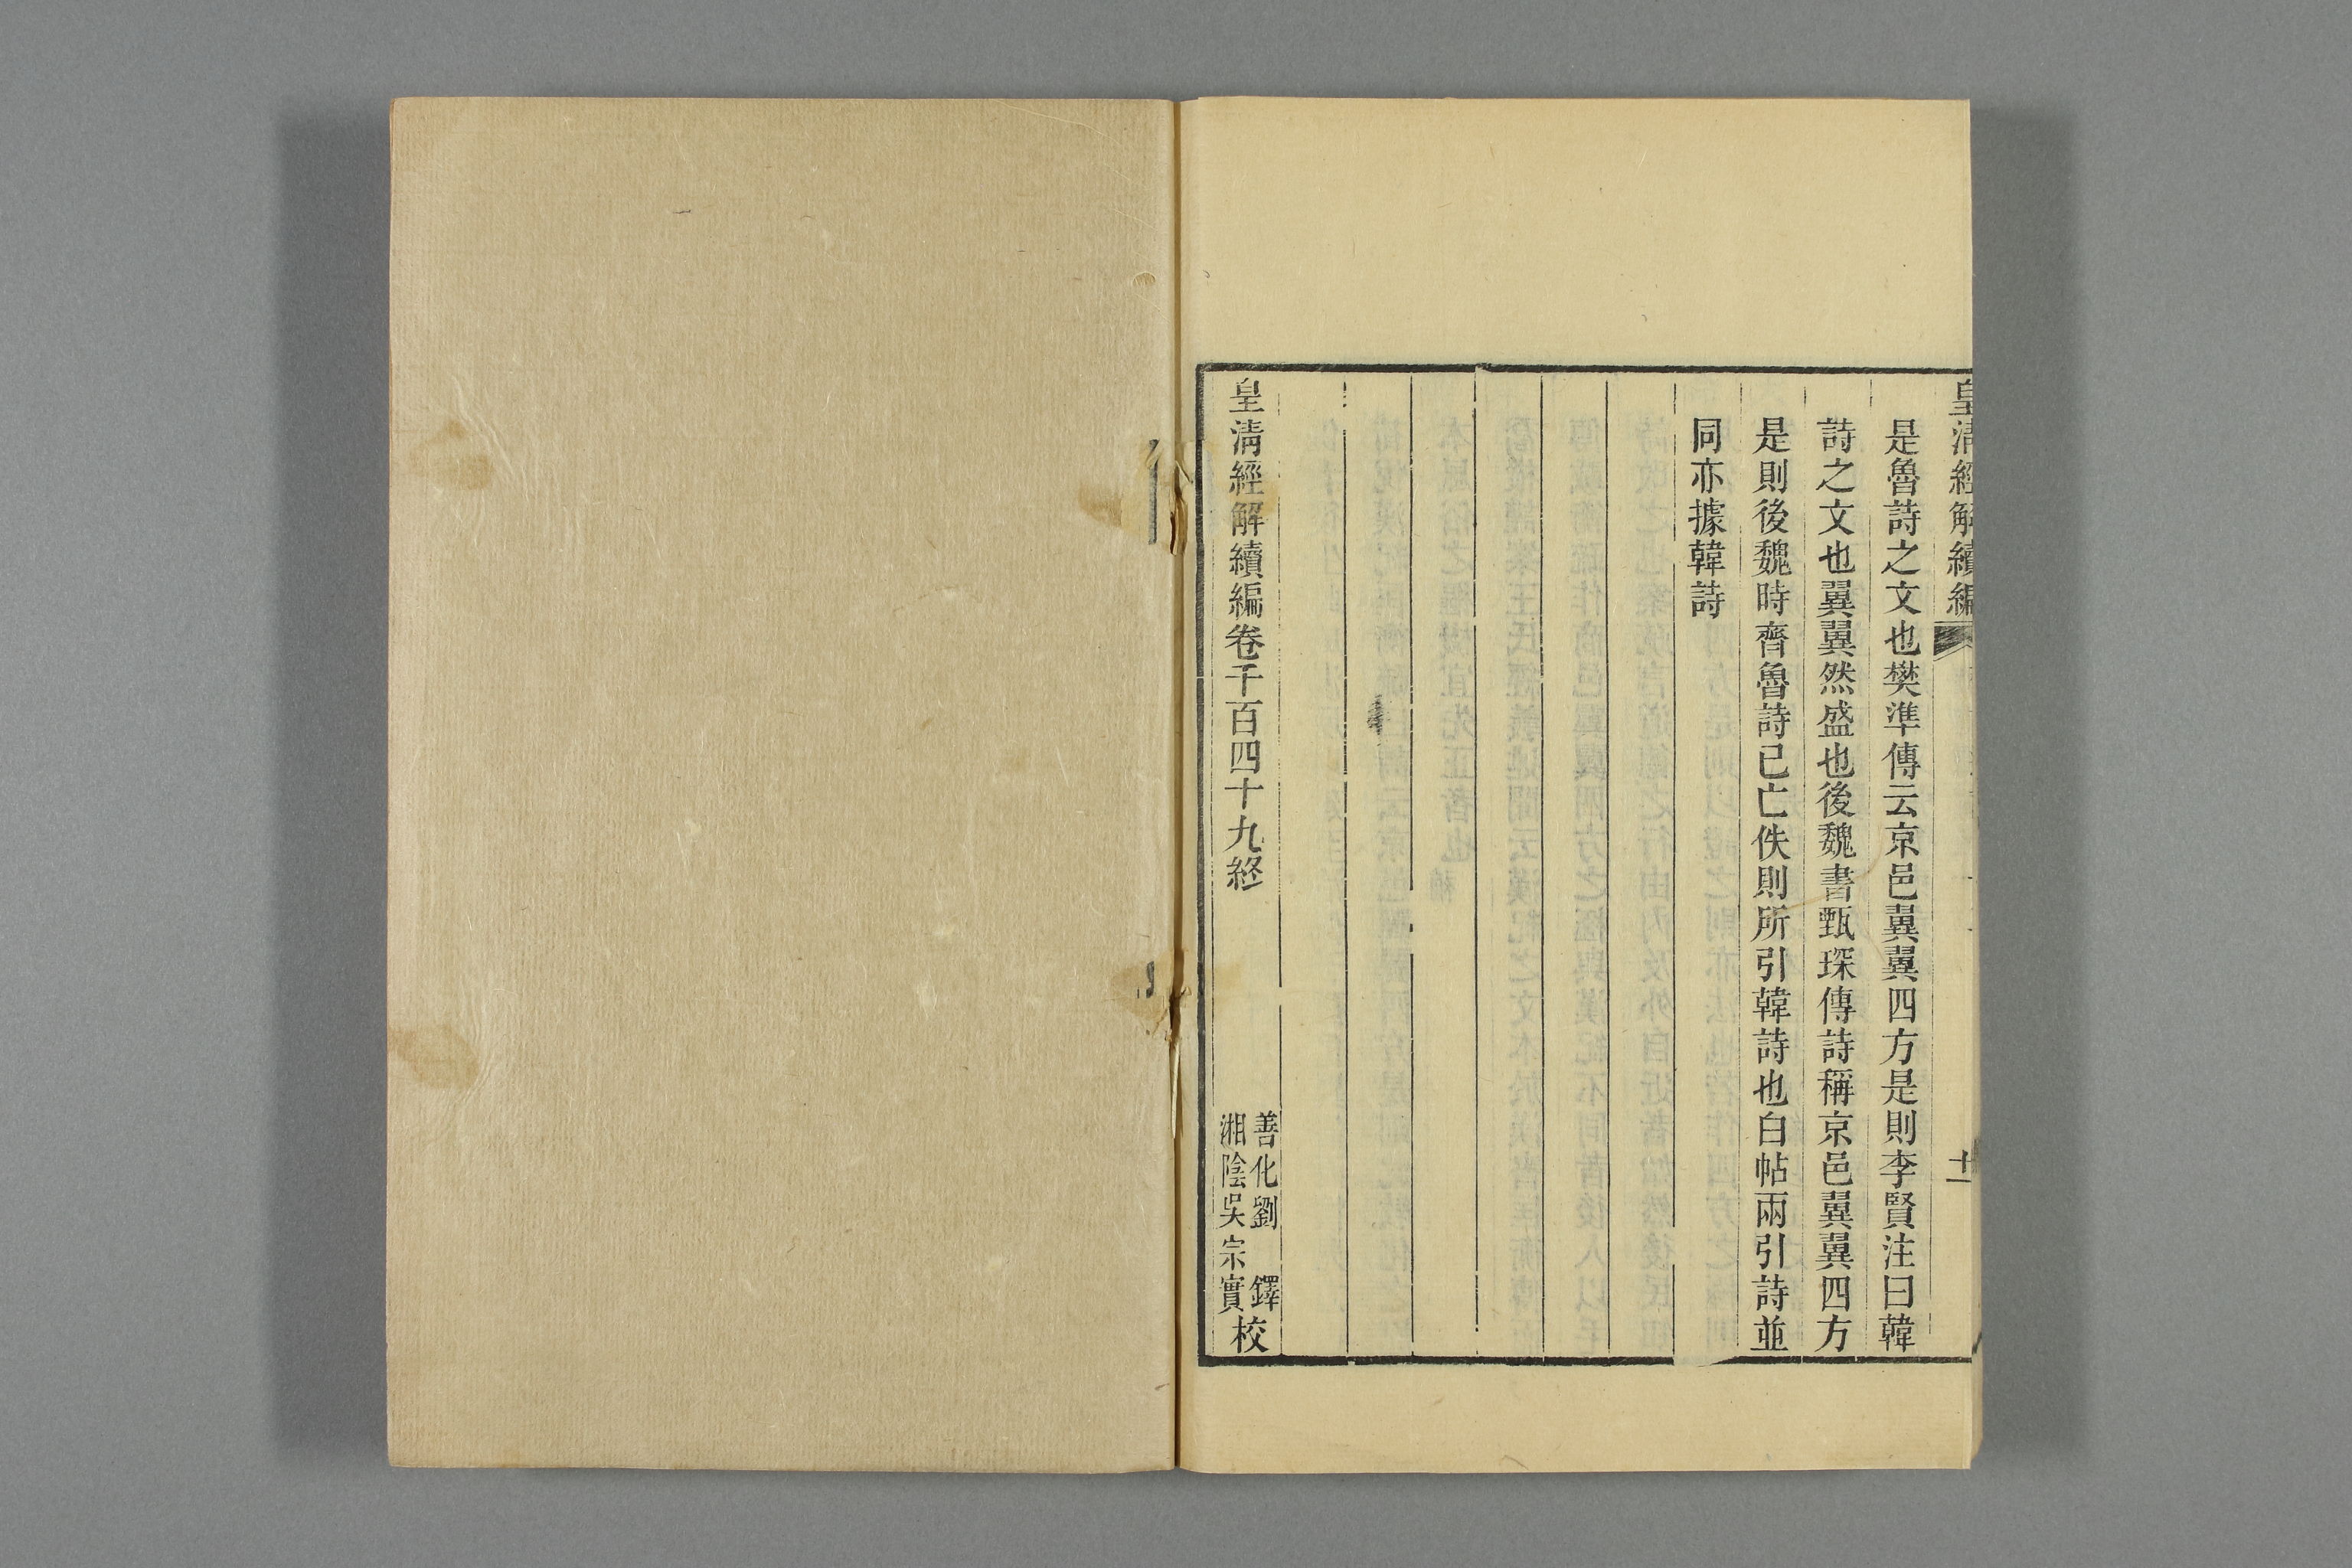 皇清經解續編
十一
是魯詩之文也樊準傳云京邑翼翼四方是則李賢注曰韓
詩之文也翼翼然盛也後魏書甄琛傳詩稱京邑翼翼四方
是則後魏時齊魯詩已亡佚則所引韓詩也白帖兩引詩並
同亦據韓詩
皇清經解續編卷千百四十九終
善化劉鐸
湘陰吳宗實
校